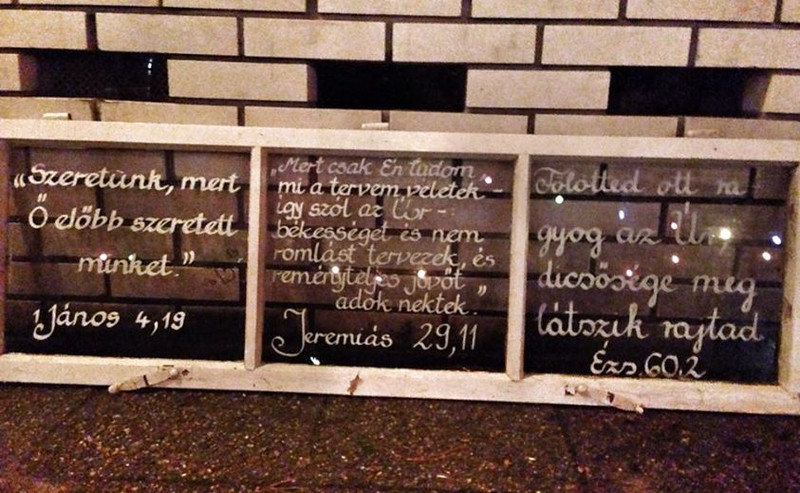 „Szeretünk, mert
Ő előbb szeretett
minket.”
1János 4,19
„Mert csak Én tudom
mi a tervem veletek -
így szól az Úr -:
békességet és nem
romlást tervezek, és
reményteljes jövőt
adok nektek.”
Jeremiás 29,11
Fölötted ott ra-
gyog az Úr,
dicsősége meg
látszik rajtad
Ézs.60.2